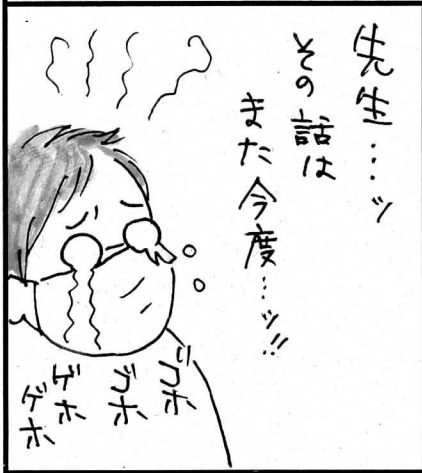 先生…ッ
その話は
また今度…ッ!!
ゴホ
ゴホ
ゲホ
ゲホ